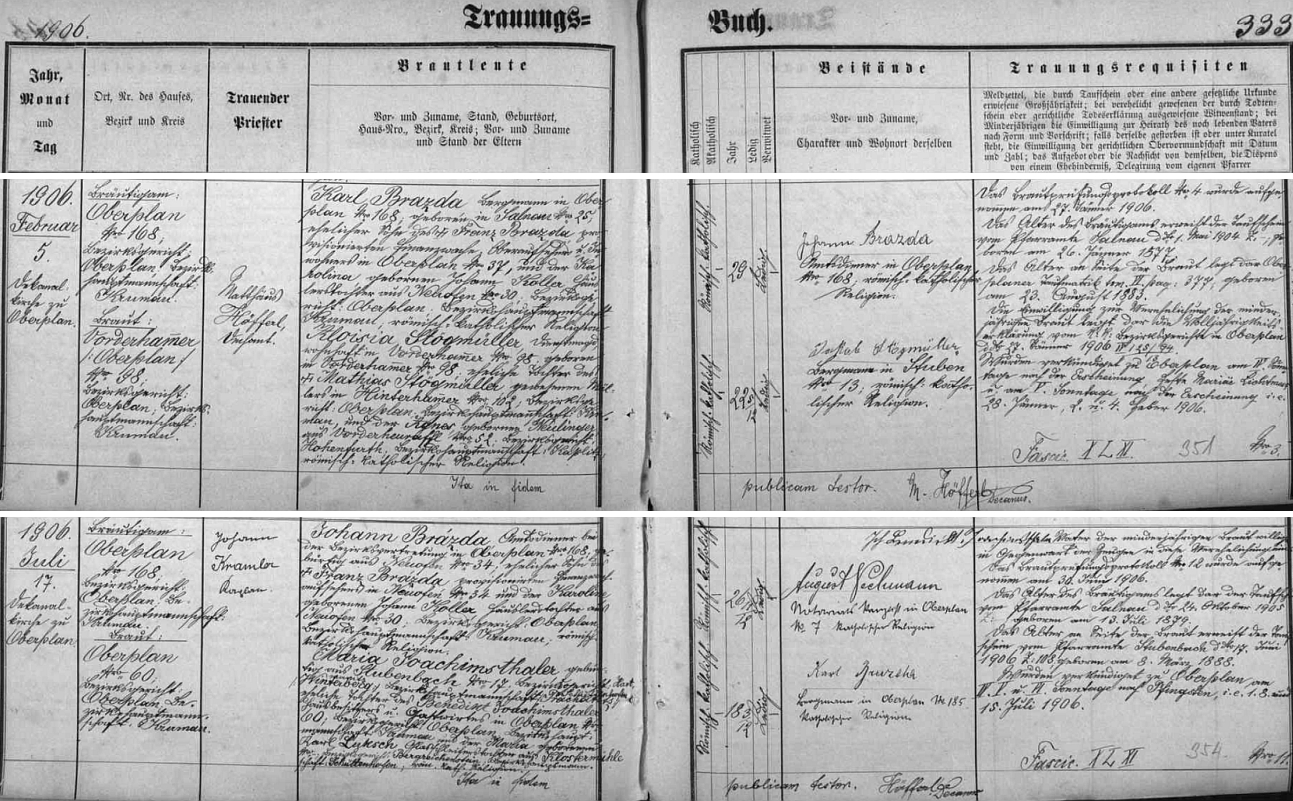 1906.
Trauungs=
Buch.
333
Jahr,
Monat
und
Tag
Ort, Nr. des Hauses,
Bezirk und Kreis
Trauender
Priester
Brautleute
Vor- und Zuname, Stand, Geburtsort,
Haus-Nro., Bezirk, Kreis; Vor- und Zuname
und Stand der Eltern
Katholisch
Akatholisch
Jahr
Ledig
Verwittwet
Beistände
Vor- und Zuname,
Charakter und Wohnort derselben
Trauungsrequisiten
Meldzettel, die durch Taufschein oder eine andere gesetzliche Urkunde
erwiesene Großjährigkeit; bei verehelicht gewesenen der durch Todten-
schein oder gerichtliche Todeserklärung ausgewiesene Witwenstand; bei
Minderjährigen die Einwilligung zur Heirath des noch lebenden Vaters
nach Form und Vorschrift; falls derselbe gestorben ist oder unter Kuratel
steht, die Einwilligung der gerichtlichen Obervormundschaft mit Datum
und Zahl; das Aufgebot oder die Nachsicht von demselben, die Dispens
von einem Ehehinderniß, Delegirung vom eigenen Pfarrer
1906.
Februar
5.
Dekanal-
kirche zu
Oberplan.
Bräutigam:
Oberplan
Nr 168,
Bezirksgericht
Oberplan, Bezirks-
hauptmannschaft:
Krumau.
Braut:
Vorderhammer
/:Oberplan/
Nr. 98,
Bezirksgericht:
Oberplan, Bezirks-
hauptmannschaft:
Krumau.
Matthäus
Höfferl,
Dechant.
Karl Brazda Bergmann in Ober-
plan No 168, geboren in Salnau No 25,
ehelicher Sohn des † Franz Brazda pro-
visionierten Finanzwache Oberaufseher u. In-
wohners in Oberplan No 57, und der Ka-
rolina geborenen Johann Koller Häus-
lerstochter aus Neuofen No 30, Bezirksge-
richt: Oberplan, Bezirkshauptmannschaft
Krumau, römisch-katholischer Religion
Aloisia Stögmüller, Dienstmagd
wohnhaft in Vorderhammer No 98, geboren
in Vorderhammer No 98, eheliche Tochter des
† Mathias Stögmüller gewesenen
in Hinterhammer No 102, Bezirksge-
richt: Oberplan, Bezirkshauptmannschaft: Kru-
mau, und der Agnes geborene Neulinger
aus Vorderheuraffl No 52, Bezirksgericht
Hohenfurth, Bezirkshauptmannschaft: Kaplitz
römisch-katholischer Religion.
Ita in fidem
Römisch-katholisch
29
Ledig
Römisch-katholisch
22
Ledig
Johann Brazda
Amtsdiener in Oberplan
No 168, römisch-katholischer
Religion.
Jakob Stögmüller
Bergmann in Stuben
No 13, römisch-katho-
lischer Religion.
publicam testor. M. Höfferl
Decanus.
Das Brautprüfungsprotokoll No 4 wurde aufge-
nommen am 27. Jänner 1906.
Das Alter des Bräutigams erweist der Taufschein
vom Pfarramte Salnau dto 1. Mai 1904, ge-
boren am 26. Jänner 1877.
Das Alter an Seite der Braut legt dar Ober-
planer Taufmatrik tom II. pag. 377, geboren
am 23. August 1883.
Die Einwilligung zur Verehelichung der minder-
jährigen Braut legt dar die Volljährigkeits-
erklärung vom k.k. Bezirksgerichte in Oberplan
dto 27. Jänner 1906
Wurden verkündiget zu Oberplan am IV. Sonn-
tage nach der Erscheinung, Feste Mariä Lichtmess
u. am V. Sonntage nach der Erscheinung i.e.
28. Jänner, 2. u. 4. Feber 1906.
Fascic. X L VI. 351 Nro 3.
1906.
Juli
17.
Dekanal-
kirche zu
Oberplan
Bräutigam:
Oberplan
No 168.
Bezirksgericht:
Oberplan, Be-
zirkshauptmannschaft:
Krumau.
Braut:
Oberplan
No 60;
Bezirksgericht:
Oberplan, Be-
zirkshauptmann-
schaft: Krumau.
Johann
Kramla
Kaplan.
Johann Brázda, Amtsdiener bei
der Bezirksvertretung in Oberplan No 168, ge-
bürtig aus Neuofen No 34, ehelicher Sohn des
† Franz Brazda provisionierten Finanzwach-
aufsehers in Neuofen No 34 und der Karolina
geborenen Johann Koller, Häuslerstochter aus
Neuofen No 30, Bezirksgericht: Oberplan,
Bezirkshauptmannschaft Krumau, römisch-
katholischer Religion.
Maria Joachimsthaler, gebür-
tig aus Stubenbach No 17, Bezirksgericht
eheliche Tochter des Benedikt Joachimsthaler
Hausbesitzers u. Gastwirtes in Oberplan No
60, Bezirksgericht Oberplan, Bezirkshaupt-
mannschaft Krumau und der Maria geborenen
Karl Luksch, aus Klostermühle
Bergreichenstein, Bezirkshauptmann-
schaft Schüttenhofen, röm. kath. Religion.
Ita in fidem
Römisch-katholisch
26
Ledig
Römisch-katholisch
18
Ledig
August Hechmann
Notariats Kanzlist in Oberplan
No 7 katholischer Religion
Karl Brazda
Bergmann in Oberplan No 185.
katholischer Religion
publicam testor. Höfferl
Decanus
Vater der minderjährigen Braut willige
in Gegenwart der Zeugen in diese Verehelichung ein
Das Brautprüfungsprotokoll No 12 wurde aufge-
nommen am 30. Juni 1906.
Das Alter des Bräutigams legt dar der Taufschein
vom Pfarramte Salnau dto 24. Oktober 1905
geboren am 13. Juli 1879.
Das Alter an Seite der Braut erweist der Tauf-
schein vom Pfarramte Stubenbach dto 17. Juni
1906 Z: 108, geboren am 8. März 1888.
Wurden verkündiget zu Oberplan am
IV., V. u. VI. Sonntage nach Pfingsten, i.e. 1. 8. und
15. Juli 1906.
Fascic. X L VI 354 Nro 11.